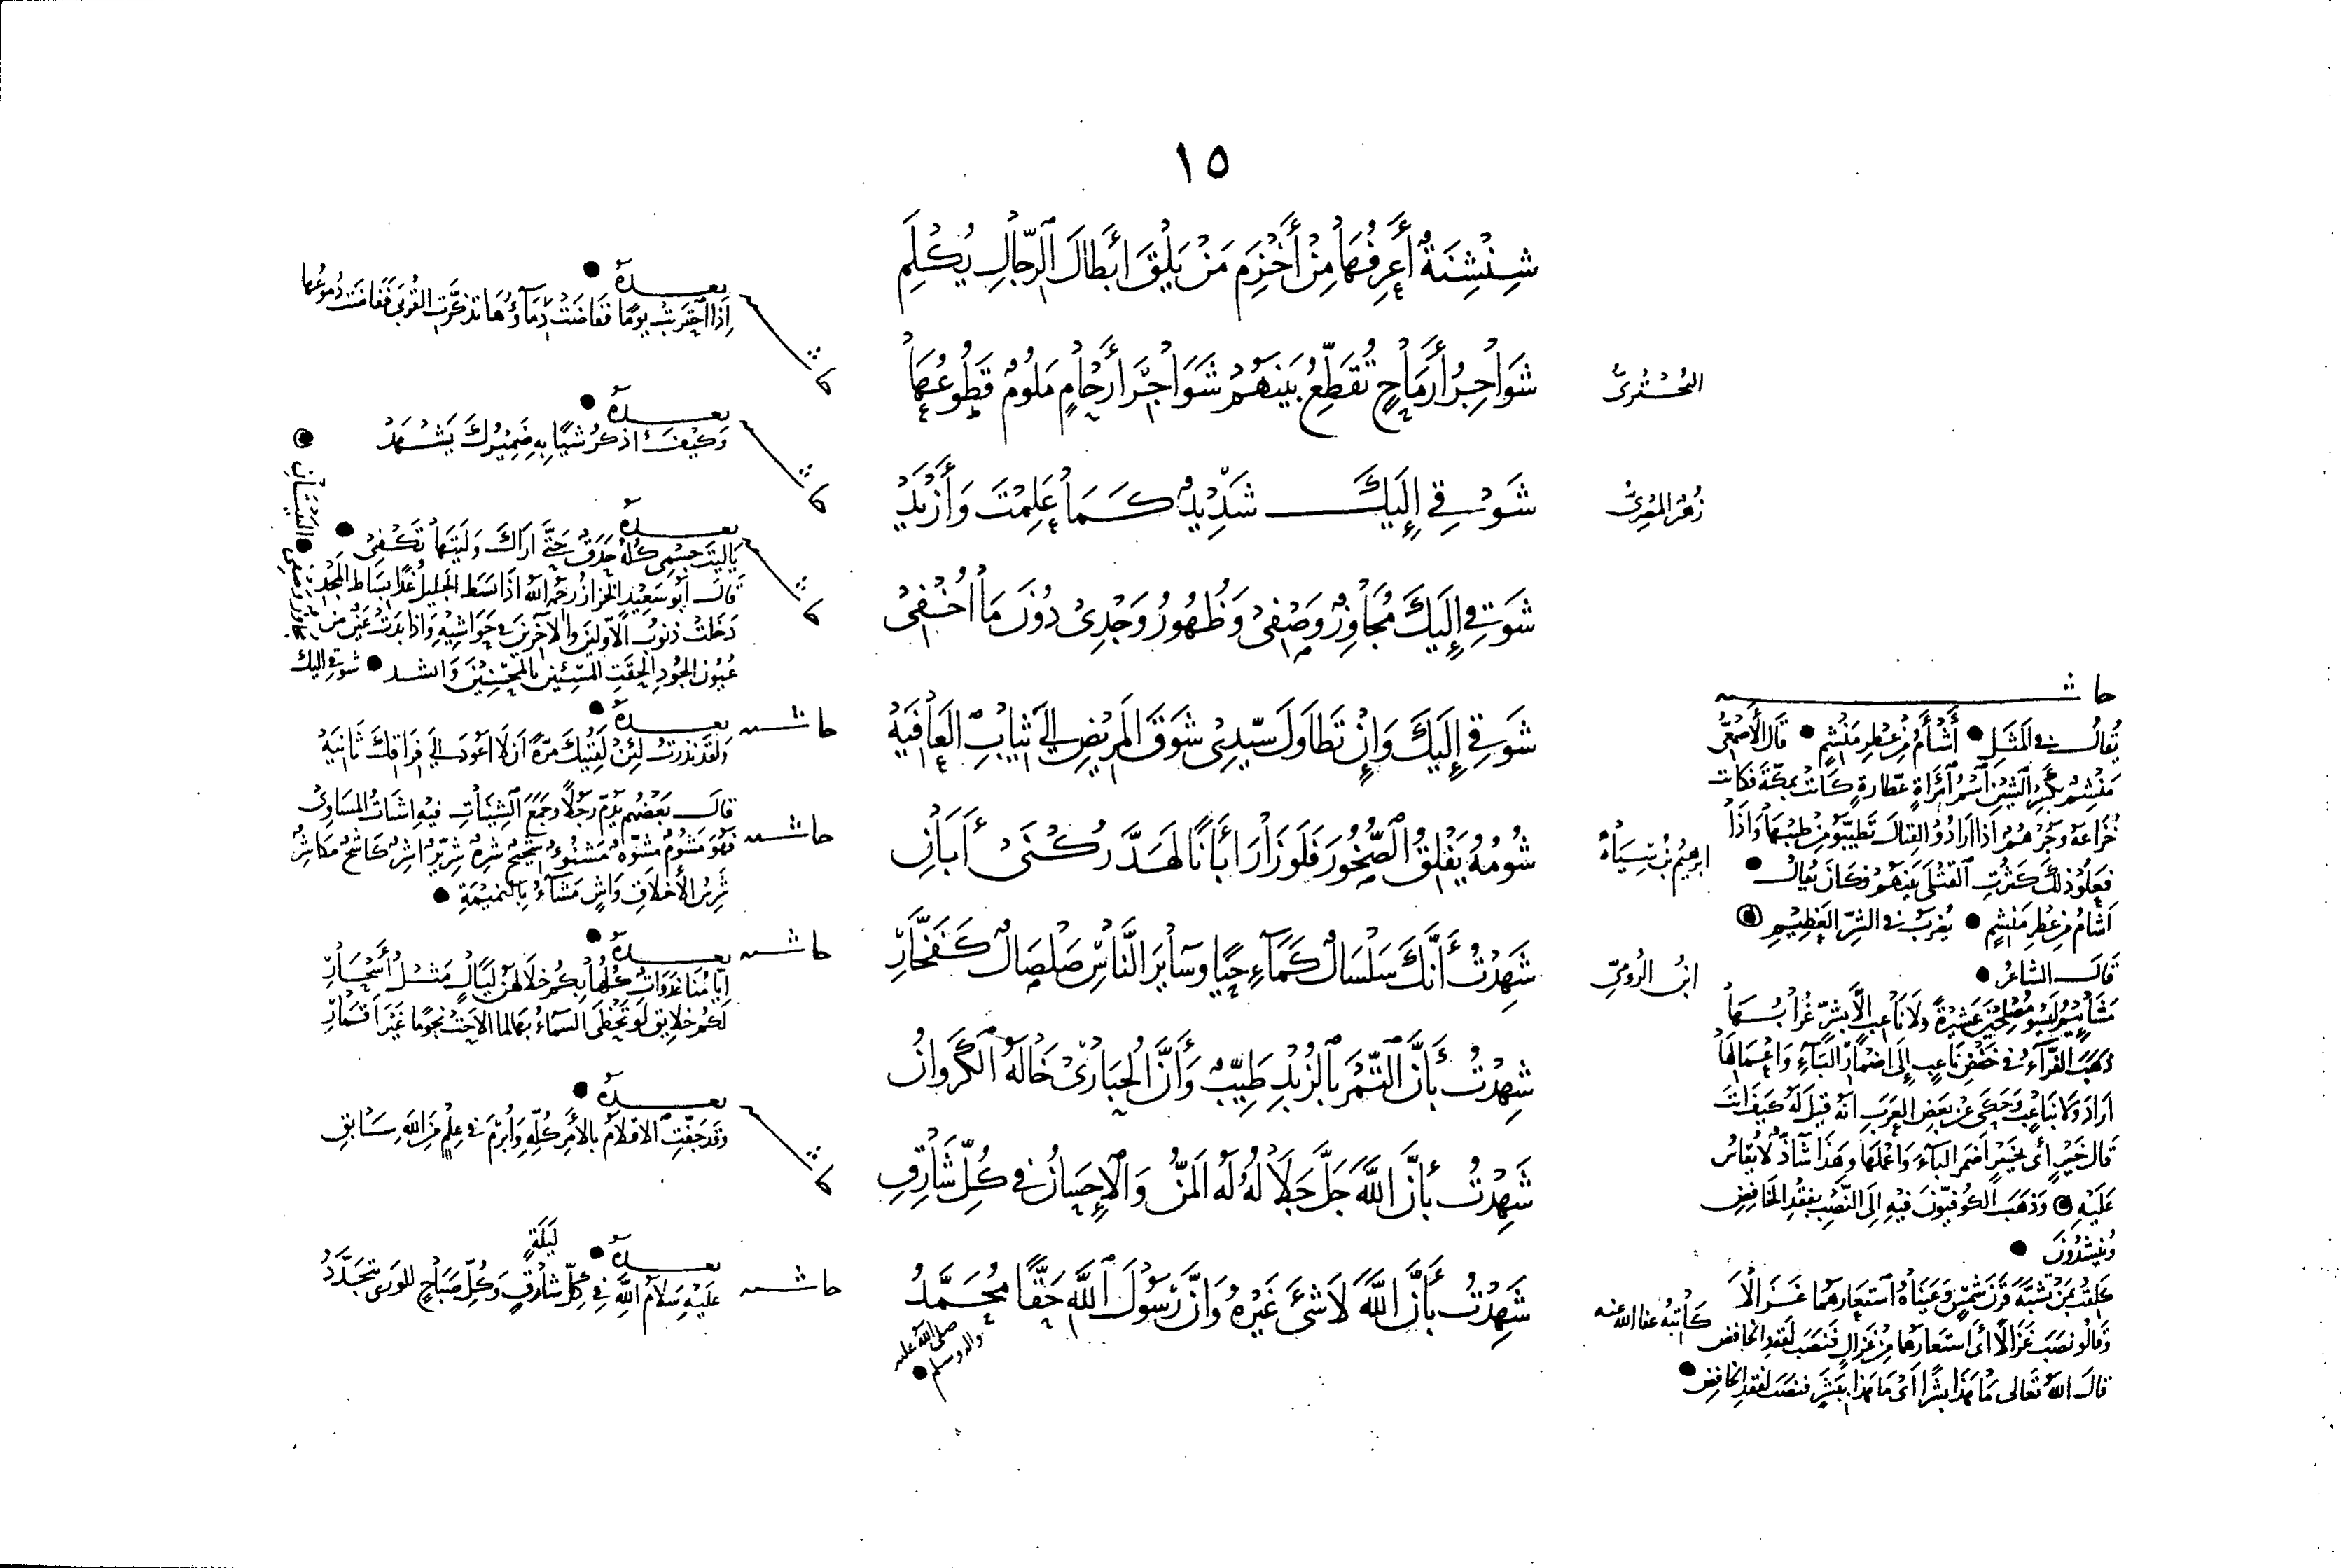 ١٥
شِنْشِنَةٌ أَعْرِفُهَا مِنْ أَخْزَمِ مَنْ يَلْقَ أَبْطَالَ الرِّجَالِ يُكْلَمِ
البُحْتُرِيُّ
شَوَاجِرُ أَرْمَاحٍ تُقَطِّعُ بَيْنَهُمْ شَوَاجِرَ أَرْحَامٍ مَلُومٌ قَطُوعُهَا
زُهَيْرُ المِصْرِيُّ
شَوْقِي إِلَيْكَ شَدِيْدٌ كَمَا عَلِمْتَ وَأَزْيَدْ
شَوْقِي إِلَيْكَ مُجَاوِزٌ وَصْفِيْ وَظُهُورُ وَجْدِيْ دُوْنَ مَا أُخْفِيْ
شَوْقِي إِلَيْكَ وَإِنْ تَطَاوَلَ سَيِّدِيْ شَوْقَ المَرِيْضِ إِلَى ثِيَابِ العَافِيَهْ
ابرهيمُ بنُ سِيَابَةَ
شُومُهُ يَفْلِقُ الصُّخُورَ فَلَوْ زَارَ أَبَانًا لَهَدَّ رُكْنَيْ أَبَانِ
ابنُ الرُّومِيّ
شَهِدْتُ أَنَّكَ سَلْسَالٌ كَمَآءِ حَيًا وسَآيرَ النَّاسِ صَلْصَالٌ كَفَخَّارِ
شَهِدْتُ بِأَنَّ التَّمْرَ بِالزُّبْدِ طَيِّبٌ وَأَنَّ الحُبَارَىْ خَالَةُ الكَرَوَانِ
شَهِدْتُ بِأَنَّ اللَّهَ جَلَّ جَلَالُهُ لَهُ المَنُّ وَالإِحْسَانُ فِي كُلِّ شَارِقِ
كَاتِبُهُ عفا الله عنه
شَهِدْتُ بِأَنَّ اللَّهَ لَا شَيْءَ غَيْرُهُ وَانَّ رَسُوْلَ اللَّهِ حَقًّا مُحَمَّدُ
صلى الله عليه
واله وسلم
حاشية
يُقَالُ فِي المَثَلِ أَشْأَمُ مِنْ عِطْرِ مَنْشِمٍ قَالَ الأَصْمَعِيُّ
مَنْشِمُ بكَسْرِ الشِّيْنِ اسْمُ امْرَأةٍ عَطَّارةٍ كَانَتْ بمكّةَ فَكَانت
خُزَاعَةُ وَجُرْهُمُ اذا ارَادُوْ القِتَالَ تَطَيَّبُو مِنْ طِيْبِهَا وَاذَا
فَعَلُو ذلكَ كَثُرتِ القَتْلَى بَيْنَهُم وَكَانَ يُقالُ
اشْأمُ مِنْ عِطْرِ مَنْشِمٍ يُضْرَبُ فِي الشَّرِّ العَظِيْمِ
قَالَ الشاعرُ
مَشَائِيمُ لَيْسُو مُصْلِحِيْنَ عَشِيْرَةً وَلَا نَاعِبٍ إلَّا بِشَرٍّ غُرَابُهَا
ذَهَبَ الفَرَّآءُ فِي خَفْضِ نَاعِبٍ إِلَى اضْمَارِ البَآءِ وَاعْمَالِهَا
ارَادَ وَلَا بِنَاعِبٍ وَحَكَى عَنْ بَعْضِ العَرَبِ انَّهُ قِيْلَ لَهُ كَيْفَ انْتَ
قالَ خَيْرٍ أَيْ بخَيْرٍ اضْمَرَ البآءَ وَاعْمَلَهَا وهَذَا شَآذٌّ لَا يُقَاسُ
عَلَيْهِ وَذَهَبَ الكُوفِيّونَ فيْهِ إلَى النَّصْبِ بفَقْدِ الخَافِضِ
وَيُنشِدُوْنَ
عَلِقْتُ بِمَنْ تشَبَّهَ قَرْنَ شَمْسٍ وَعَيْنَاهُ اسْتَعَارَهُمَا غَزَالَا
وَقَالُو نصَبَ غَزَالًا أَيْ اسْتَعَارَهُمَا مِنْ غَزَالٍ فنَصَبَ لفَقْدِ الخَافِضِ
قالَ اللهُ تَعَالى مَا هَذَا بَشَرًا أَيْ مَا هَذا بِبَشَرٍ فنصَبَ لفَقْدِ الخَافِضِ
بعدهُ
اذا احْتَرَبَتْ يومًا فَفَاضَتْ دِمَآؤُهَا تذَكَّرَتِ القُرْبَى فَفَاضَتْ دُمُوْعُهَا
حاشية
بعدهُ
وَكَيْفَ اذكرُ شَيًا بِهِ ضَمِيْرُكَ يَشْهَدْ
حاشية
بعدهُ
يَا ليْتَ جِسْمِي كُلُّهُ حَدَقٌ حَتَّى ارَاكَ وَلَيْتَهَا تَكْفِيْ
قالَ ابو سَعِيْدٍ الخَرَّازُ رحمهُ الله اذَا بَسَط الجليلُ غدًا بسَاطَ المَجْدِ
دَخَلتْ ذنوبُ الاوّلينَ والاخرينَ في حَوَاشِيْهِ وَاذا بَدَتْ عَيْنٌ من
عُيُونِ الجُودِ الحَقَتِ المُسِيْئينَ بالمُحْسِنِيْنَ وَانشد شوقي اليك
مجاوزٌ وصفي البَيْتَانِ
حاشية
بعدهُ
وَلقَدْ نذرْتُ لَئِنْ لَقِيْتُكَ مَرَّةً ان لَا اعُوْدَ إلى فِرَاقِكَ ثَانِيَهْ
حاشية
قالَ بَعْضُهُم يَذمُّ رَجُلًا وجَمَعَ الشِّيْنَاتِ فيْهِ اشتَاتُ المسَاوِئ
فهُوَ مَشْؤُمٌ مُشَوَّهٌ مَشْنُوْءٌ شَحِيْحٌ شَرِهٌ شِرِّيْرٌ اشِرٌ كَاشحٌ مُكَاشِرٌ
شَرِسُ الأخلَاقِ وَاشٍ مَشَّآءٌ بِالنّمِيْمَةِ
حاشية
بعدهُ
ايَّامُنَا غَدَوَاتٌ كُلُّهَا بِكُمُ خِلَالَهُنَّ لَيَالٍ مِثْلُ أَسْحَارِ
لَكُمْ خلايقُ لَوْ تَحْظَى السّمَاءُ بهَا لما الاحَتْ نُجُومًا غَيْرَ اقمَارِ
بعدهُ
وَقَدْ جَفَّتِ الاقلَامُ بالأمْرِ كُلِّهِ وَابْرمَ في عِلْمٍ مِنَ اللهِ سَابِقِ
حاشية
بعدهُ
لَيْلَةٍ
عَلَيْهِ سَلَامُ اللهِ فِي كلِّ شارقٍ وَكُلِّ صَبَاحٍ للوَرَى يَتَجَدَّدُ
حاشية